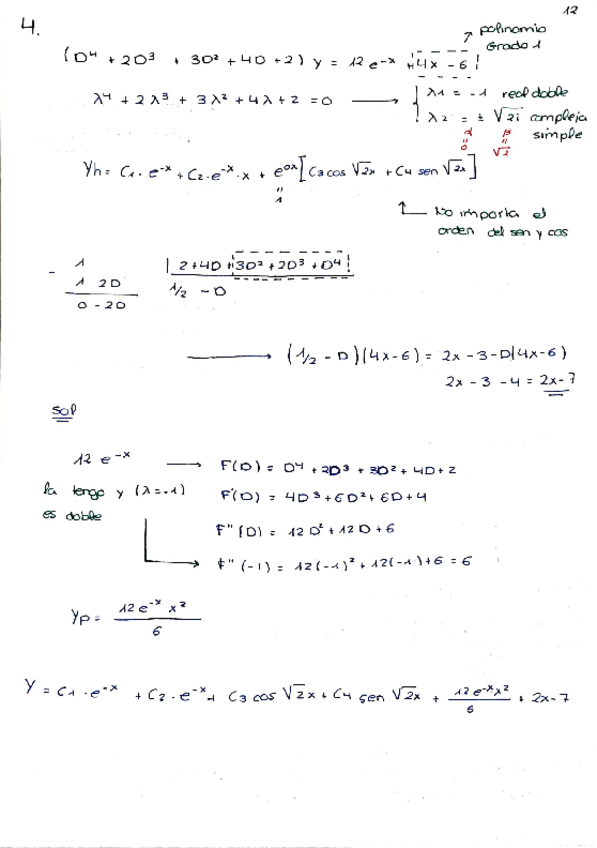 12
4.
polinomio
Grado 1
(D⁴ + 2D³ + 3D² + 4D + 2) y = 12 e⁻ˣ + 4x - 6
λ⁴ + 2λ³ + 3λ² + 4λ + 2 = 0 → { λ1 = -1 real doble
λ2 = ± √2i compleja simple
α = 0 β = √2
Yh = C1 · e⁻ˣ + C2 · e⁻ˣ · x + e⁰ˣ [C3 cos √2x + C4 sen √2x]
= 1
No importa el
orden del sen y cos
- 1 | 2 + 4D + 3D² + 2D³ + D⁴
1 2D 1/2 - D
0 - 2D
→ (1/2 - D)(4x - 6) = 2x - 3 - D(4x - 6)
2x - 3 - 4 = 2x - 7
Sol
12 e⁻ˣ → F(D) = D⁴ + 2D³ + 3D² + 4D + 2
la tengo y (λ = -1) F'(D) = 4D³ + 6D² + 6D + 4
es doble
F''(D) = 12D² + 12D + 6
F''(-1) = 12(-1)² + 12(-1) + 6 = 6
Yp = 12 e⁻ˣ x² / 6
Y = C1 · e⁻ˣ + C2 · e⁻ˣ + C3 cos √2x + C4 sen √2x + 12 e⁻ˣx² / 6 + 2x - 7